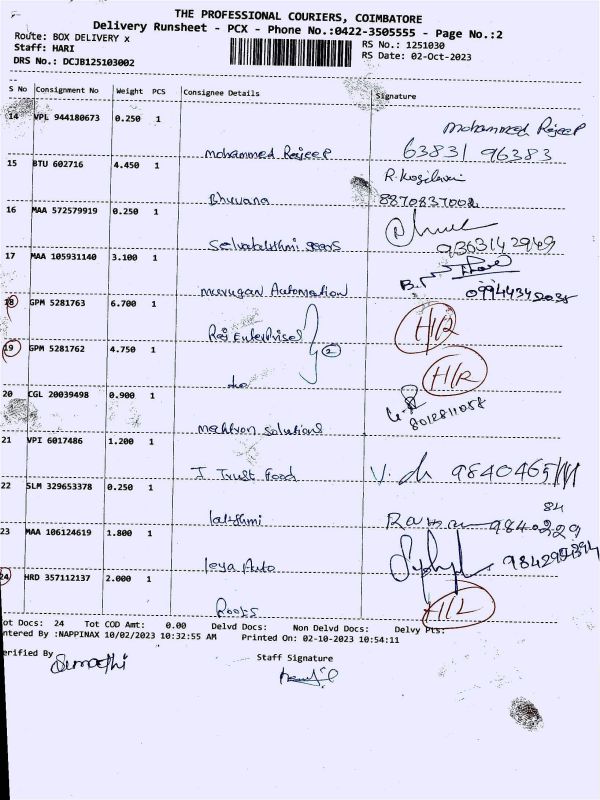 THE PROFESSIONAL COURIERS, COIMBATORE
Delivery Runsheet - PCX - Phone No.:0422-3505555 - Page No.:2
Route: BOX DELIVERY x
RS No.: 1251030
Staff: HARI
RS Date: 02-Oct-2023
DRS No.: DCJB125103002
S No Consignment No Weight PCS Consignee Details Signature
14 VPL 944180673 0.250 1
Mohammed Rajeep
Mohammed Rajeep
63831 96383
15 BTU 602716 4.450 1
R. Kogilavani
Bhuvana
8870837002
16 MAA 572579919 0.250 1
Selvalakshmi
9363142949
17 MAA 105931140 3.100 1
Murugan Automation
09944342035
18 GPM 5281763 6.700 1
Raj Enterprises
H/R
19 GPM 5281762 4.750 1
2
do
H/R
20 CGL 20039498 0.900 1
Mechtron Solutions
8012811058
21 VPI 6017486 1.200 1
I Trust Food
V. 9840465
22 SLM 329653378 0.250 1
lakshmi
84
9840229
23 MAA 106124619 1.800 1
leya Auto
24 HRD 357112137 2.000 1
Roots
H/L
ot Docs: 24 Tot COD Amt: 0.00 Delvd Docs: Non Delvd Docs: Delvy Pts:
ntered By :NAPPINAX 10/02/2023 10:32:55 AM Printed On: 02-10-2023 10:54:11
erified By
Staff Signature
Sumathi